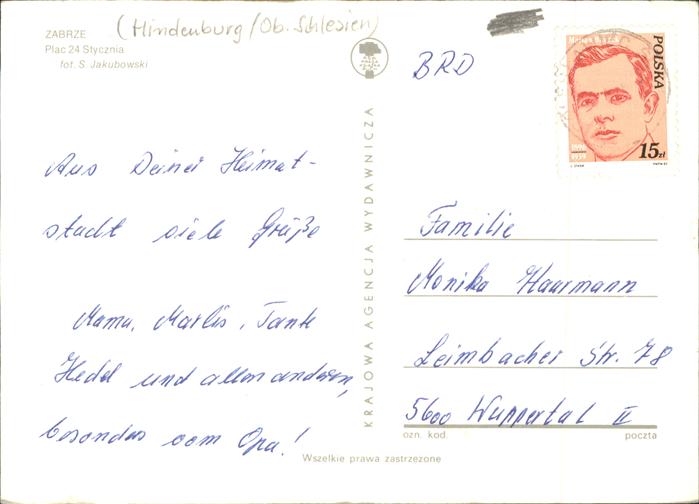 (Hindenburg/Ob. Schlesien)
ZABRZE
Plac 24 Stycznia
fot. S. Jakubowski
BRD
POLSKA
1939
15zł
Aus Deiner Heimat-
stadt viele Grüße
Mama, Marlis, Tante
Hedel und allen anderen,
besonders vom Opa!
KRAJOWA AGENCJA WYDAWNICZA
Familie
Monika Haarmann
Leimbacher Str. 78
5600 Wuppertal II
ozn. kod. poczta
Wszelkie prawa zastrzeżone